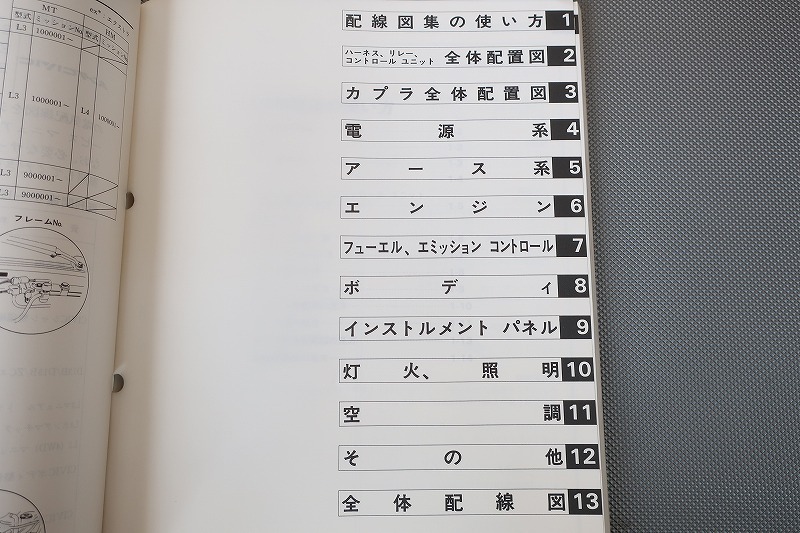 MT
ex*・エクストラ
型式 ミッションNo. 型式 HM
L3 1000001～
L3 1000001～ L4 1000001～
L3 9000001～
L3 9000001～
フレームNo.
配線図集の使い方 1
ハーネス、リレー、
コントロール ユニット 全体配置図 2
カプラ全体配置図 3
電源系 4
アース系 5
エンジン 6
フューエル、エミッション コントロール 7
ボディ 8
インストルメント パネル 9
灯火、照明 10
空調 11
その他 12
全体配線図 13